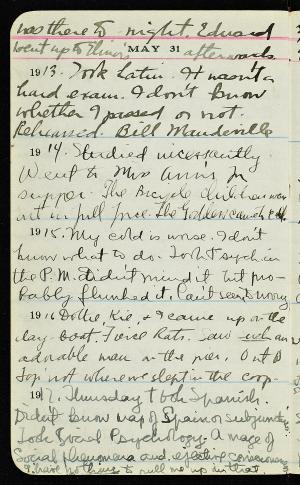 was there to night. Edward
went up to Theirs afterwards
MAY 31
1913. Took Latin. It wasn't a
hard exam. I don't know
whether I passed or not.
Rehearsed. Bill Mandeville
1914. Studied incessantly
Went to Miss Ann's for
supper. The Bicycle children were
out in full force. The
1915. My cold is worse. I don't
know what to do. Took Psych in
the P.M. didn't mind it but pro-
bably flunked it. Can't seem to worry
1916 Dollie Kie, & I came up on the
day-boat. Fierce Rats. Saw such an
adorable man on the pier. Out B
Top not where we slept in the coop-
1917. Thursday took Spanish.
Didn't know map of Spain or subjunctive
Took Social Psychology. A maze of
Social phenomena and consciousness
I have nothing to pull me up in that